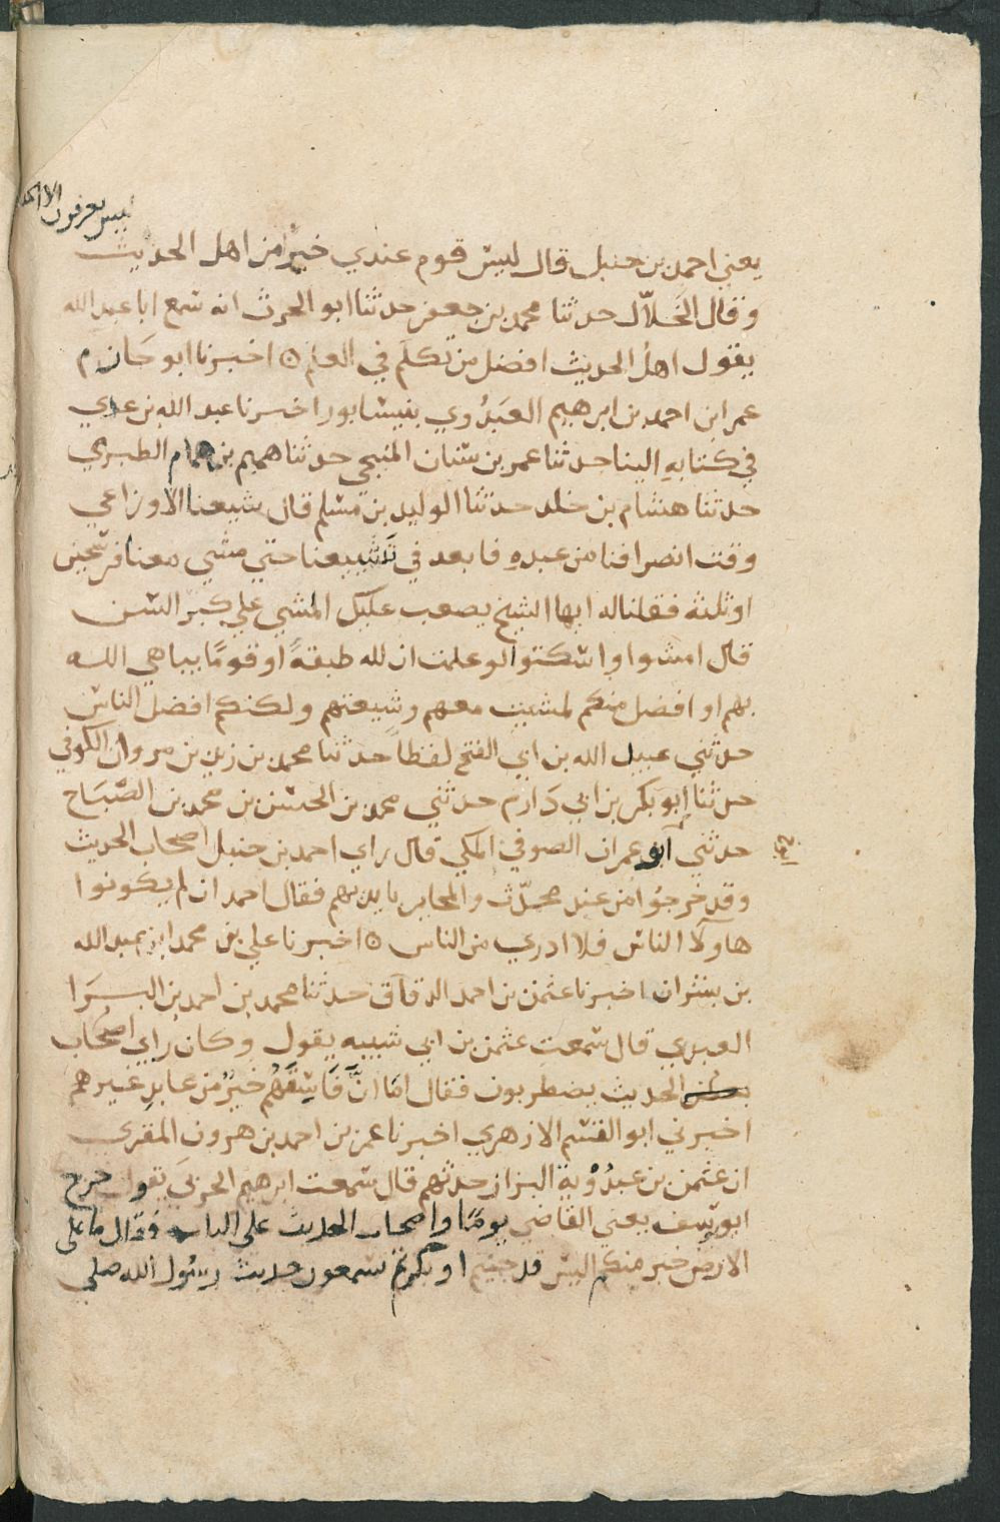 ليس يعرفون الا الحد
يعني احمد بن حنبل قال ليس قوم عندي خيرا من اهل الحديث
وقال الخلّال حدثنا محمد بن جعفر حدثنا ابو الحرث انه سمع ابا عبد الله
يقول اهلُ الحديث افضل من تكلم في العلم ○ اخبرنا ابو حازم
عمر ابن احمد بن ابرهيم العَبدُوي بنيسابور اخبرنا عبد الله بن عدي
في كتابهِ الينا حدثنا عمر بن سنان المنبجي حدثنا هميم بن همام الطبري
حدثنا هشام بن خلد حدثنا الوليد بن مسلم قال شيعنا الاوزاعي
وقت انصرافنا من عبدهِ فابعد في تَشييعنا حتي مشي معنا فرسخين
او ثلثه فقلنا له ايها الشيخ يصعب عليك المشي علي كبر السن
قال امشوا واسكتوا لو علمت ان لله طبقهً او قومًا يباهي الله
بهم او افضل منكم لمشيت معهم وشيعتهم ولكنكم افضل الناس
حدثني عبيد الله بن ابي الفتح لفظاً حدثنا محمد بن زيد بن مروان الكوفي
حدثنا ابو بكر بن ابي دَارم حدثني محمد بن الحسن بن محمد بن الصّبَاح
حدثني ابو عمران الصوفي المكي قال راي احمد بن حنبل اصحاب الحديث
وقد خرجوُا من عند محدّث والمحابر بايديهم فقال احمد ان لم يكونوا
هاولآ الناس فلا ادري من الناس ○ اخبرنا علي بن محمد ابن عبد الله
بن بشران اخبرنا عثمن بن احمد الدقاق حدثنا محمد بن احمد بن البَرَا
العبدي قال سمعت عثمن بن ابي شيبه يقول وكان راي اصحاب
الحديث يضطربون فقال امَا انَّ فَاسِقَهُم خيرٌ من عابدِ غيرهم
اخبرني ابو القسم الازهري اخبرنا عمر بن احمد بن هرون المقري
ان عثمن بن عبدُوْيهَ البزاز حدثهم قال سمعت ابرهيم الحربيَ يقول خرج
ابو يوسف يعني القاضي يومًا واصحاب الحديث على الباب فقال ما على
الارض خير منكم اليس قد جيتم او بكرتم تسمعون حديث رسُول الله صلي